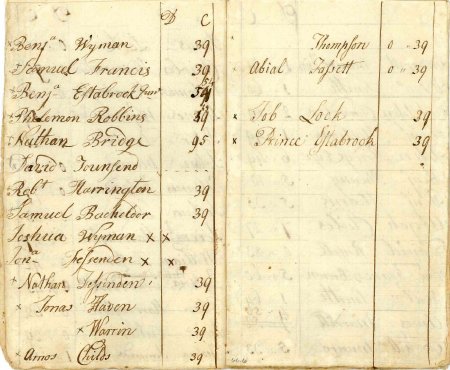 D C
× Benja Wyman 39
× Samuel Francis 39
× Benja Estabrook Junr
× Philemon Robbins 39
× Nathan Bridge 95
David Tounsend
Robt Harrington 39
Samuel Bachelder 39
Joshua Wyman × ×
Jona Fessenden × ×
× Nathan Fessinden 39
× Jonas Haven 39
× Warrin 39
× Amos Childs 39
Thompson 0 " 39
× Abial Fassett 0 " 39
× Job Lock 39
× Prince Estabrook 39